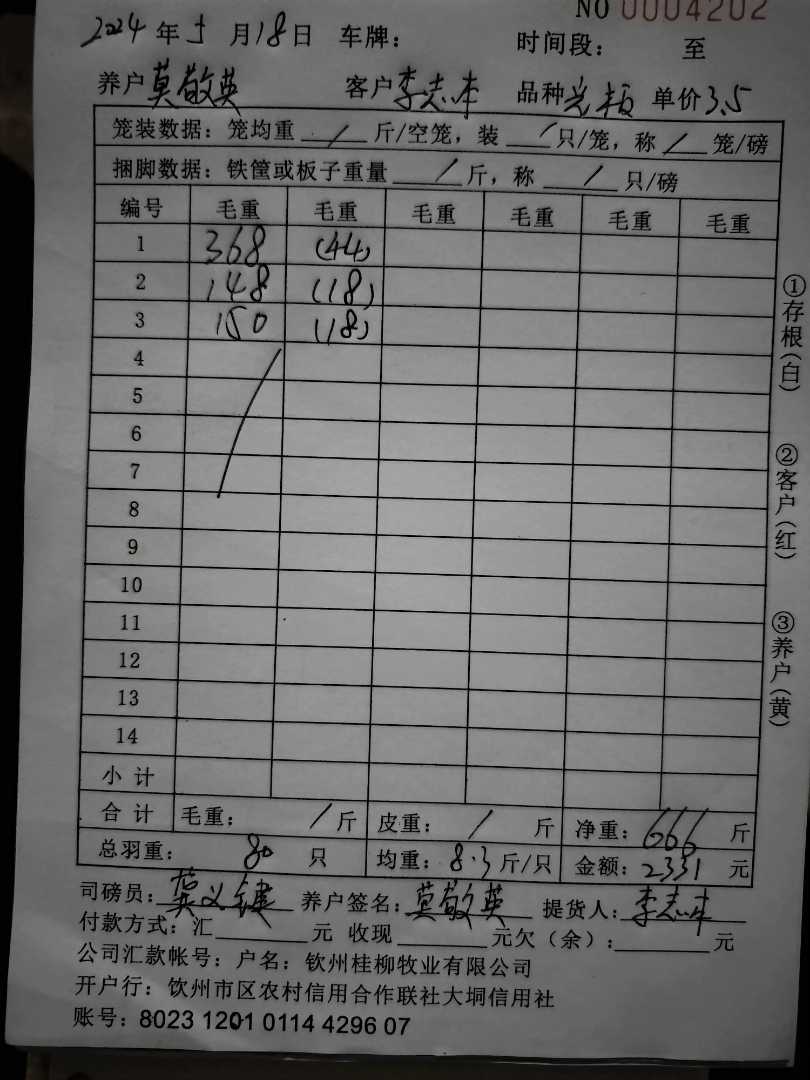 NO 0004202
2024 年 5 月 18 日 车牌： 时间段： 至
养户 莫敬英 客户 李志本 品种 光板 单价 3.5
笼装数据：笼均重 / 斤/空笼，装 / 只/笼，称 / 笼/磅
捆脚数据：铁筐或板子重量 / 斤，称 / 只/磅
编号 毛重 毛重 毛重 毛重 毛重 毛重
1 368 (44)
2 148 (18)
3 150 (18)
4
5
6
7
8
9
10
11
12
13
14
小计
合计 毛重： / 斤 皮重： / 斤 净重： 666 斤
总羽重： 80 只 均重： 8.3 斤/只 金额： 2331 元
司磅员： 龚义键 养户签名： 莫敬英 提货人： 李志本
付款方式：汇 元 收现 元欠（余）： 元
公司汇款帐号：户名：钦州桂柳牧业有限公司
开户行：饮州市区农村信用合作联社大垌信用社
账号：8023 1201 0114 4296 07
①存根(白)
②客户(红)
③养户(黄)